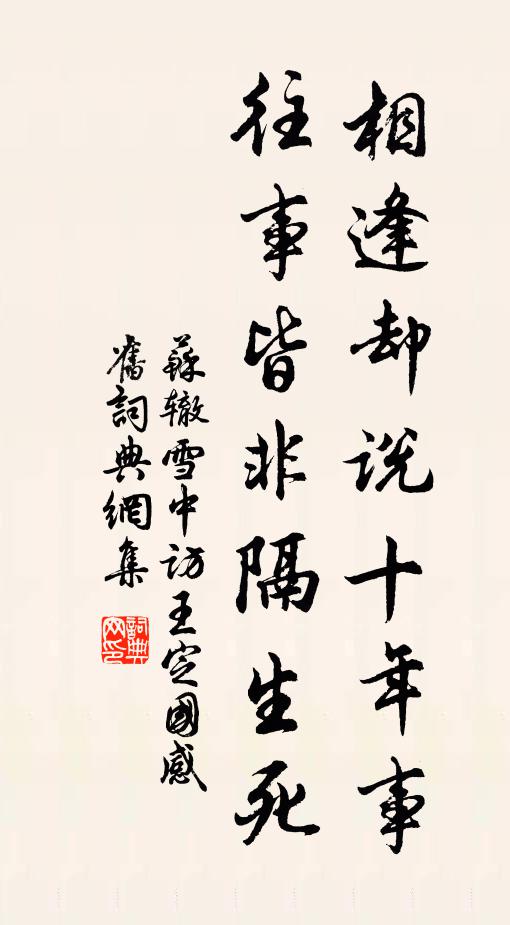 相逢却说十年事
往事皆非隔生死
蘇辙雪中访王定國感
舊詞典網集
詞典网印